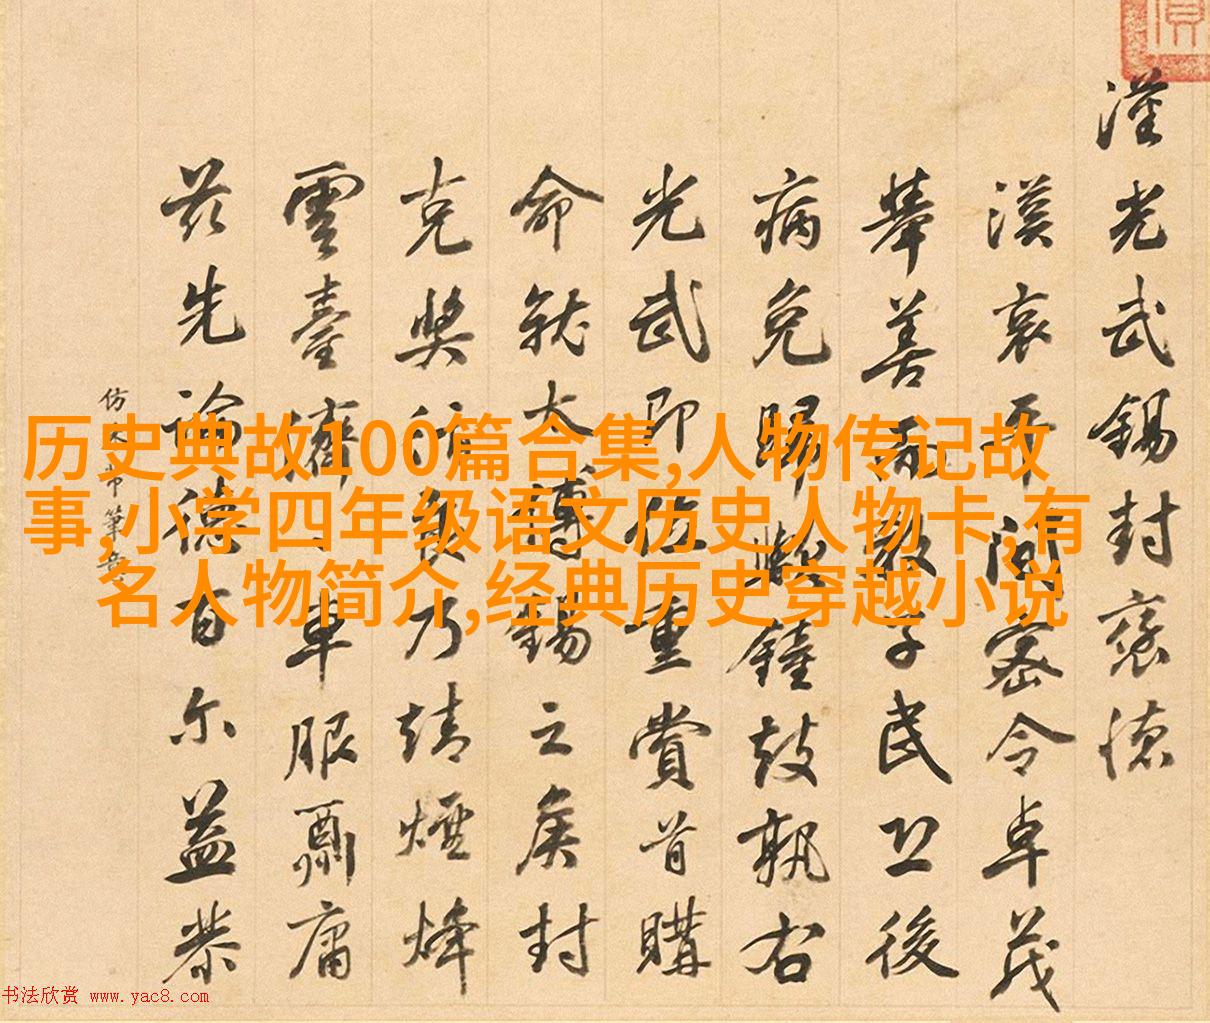 漢光武錫封褒德
漢哀平間密令卓茂
舉善而教子民後
病免歸鐘鼓執右
光武即位重賞首購
命就太傅錫之矦封
克奨乃靖煙烽
雲臺車服酬庸
茲先論德百尔益恭
仿筆意
历史典故100篇合集,人物传记故
事,小学四年级语文历史人物卡,有
名人物简介,经典历史穿越小说
书法欣赏 www.yac8.com